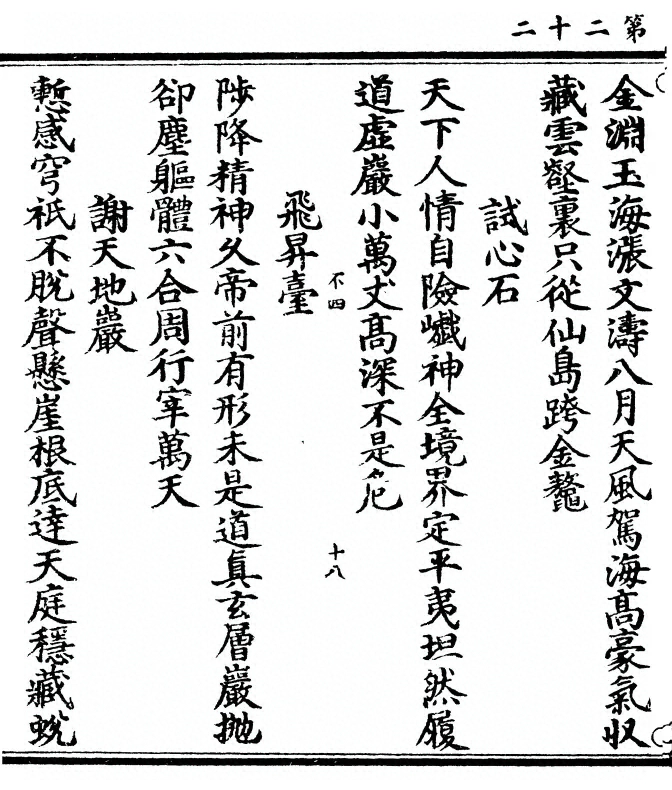 第二十二
金淵玉海漲文濤八月天風駕海髙豪氣収
藏雲壑裏只從仙島跨金鼇
試心石
天下人情自險巇神全境界定平夷坦然履
道虛巖小萬丈髙深不是危
不四
十八
飛昇臺
陟降精神久帝前有形未是道真玄層巖拋
卻塵軀體六合周行宰萬天
謝天地巖
慙感穹祇不脫聲懸崖根底達天庭穩藏蛻